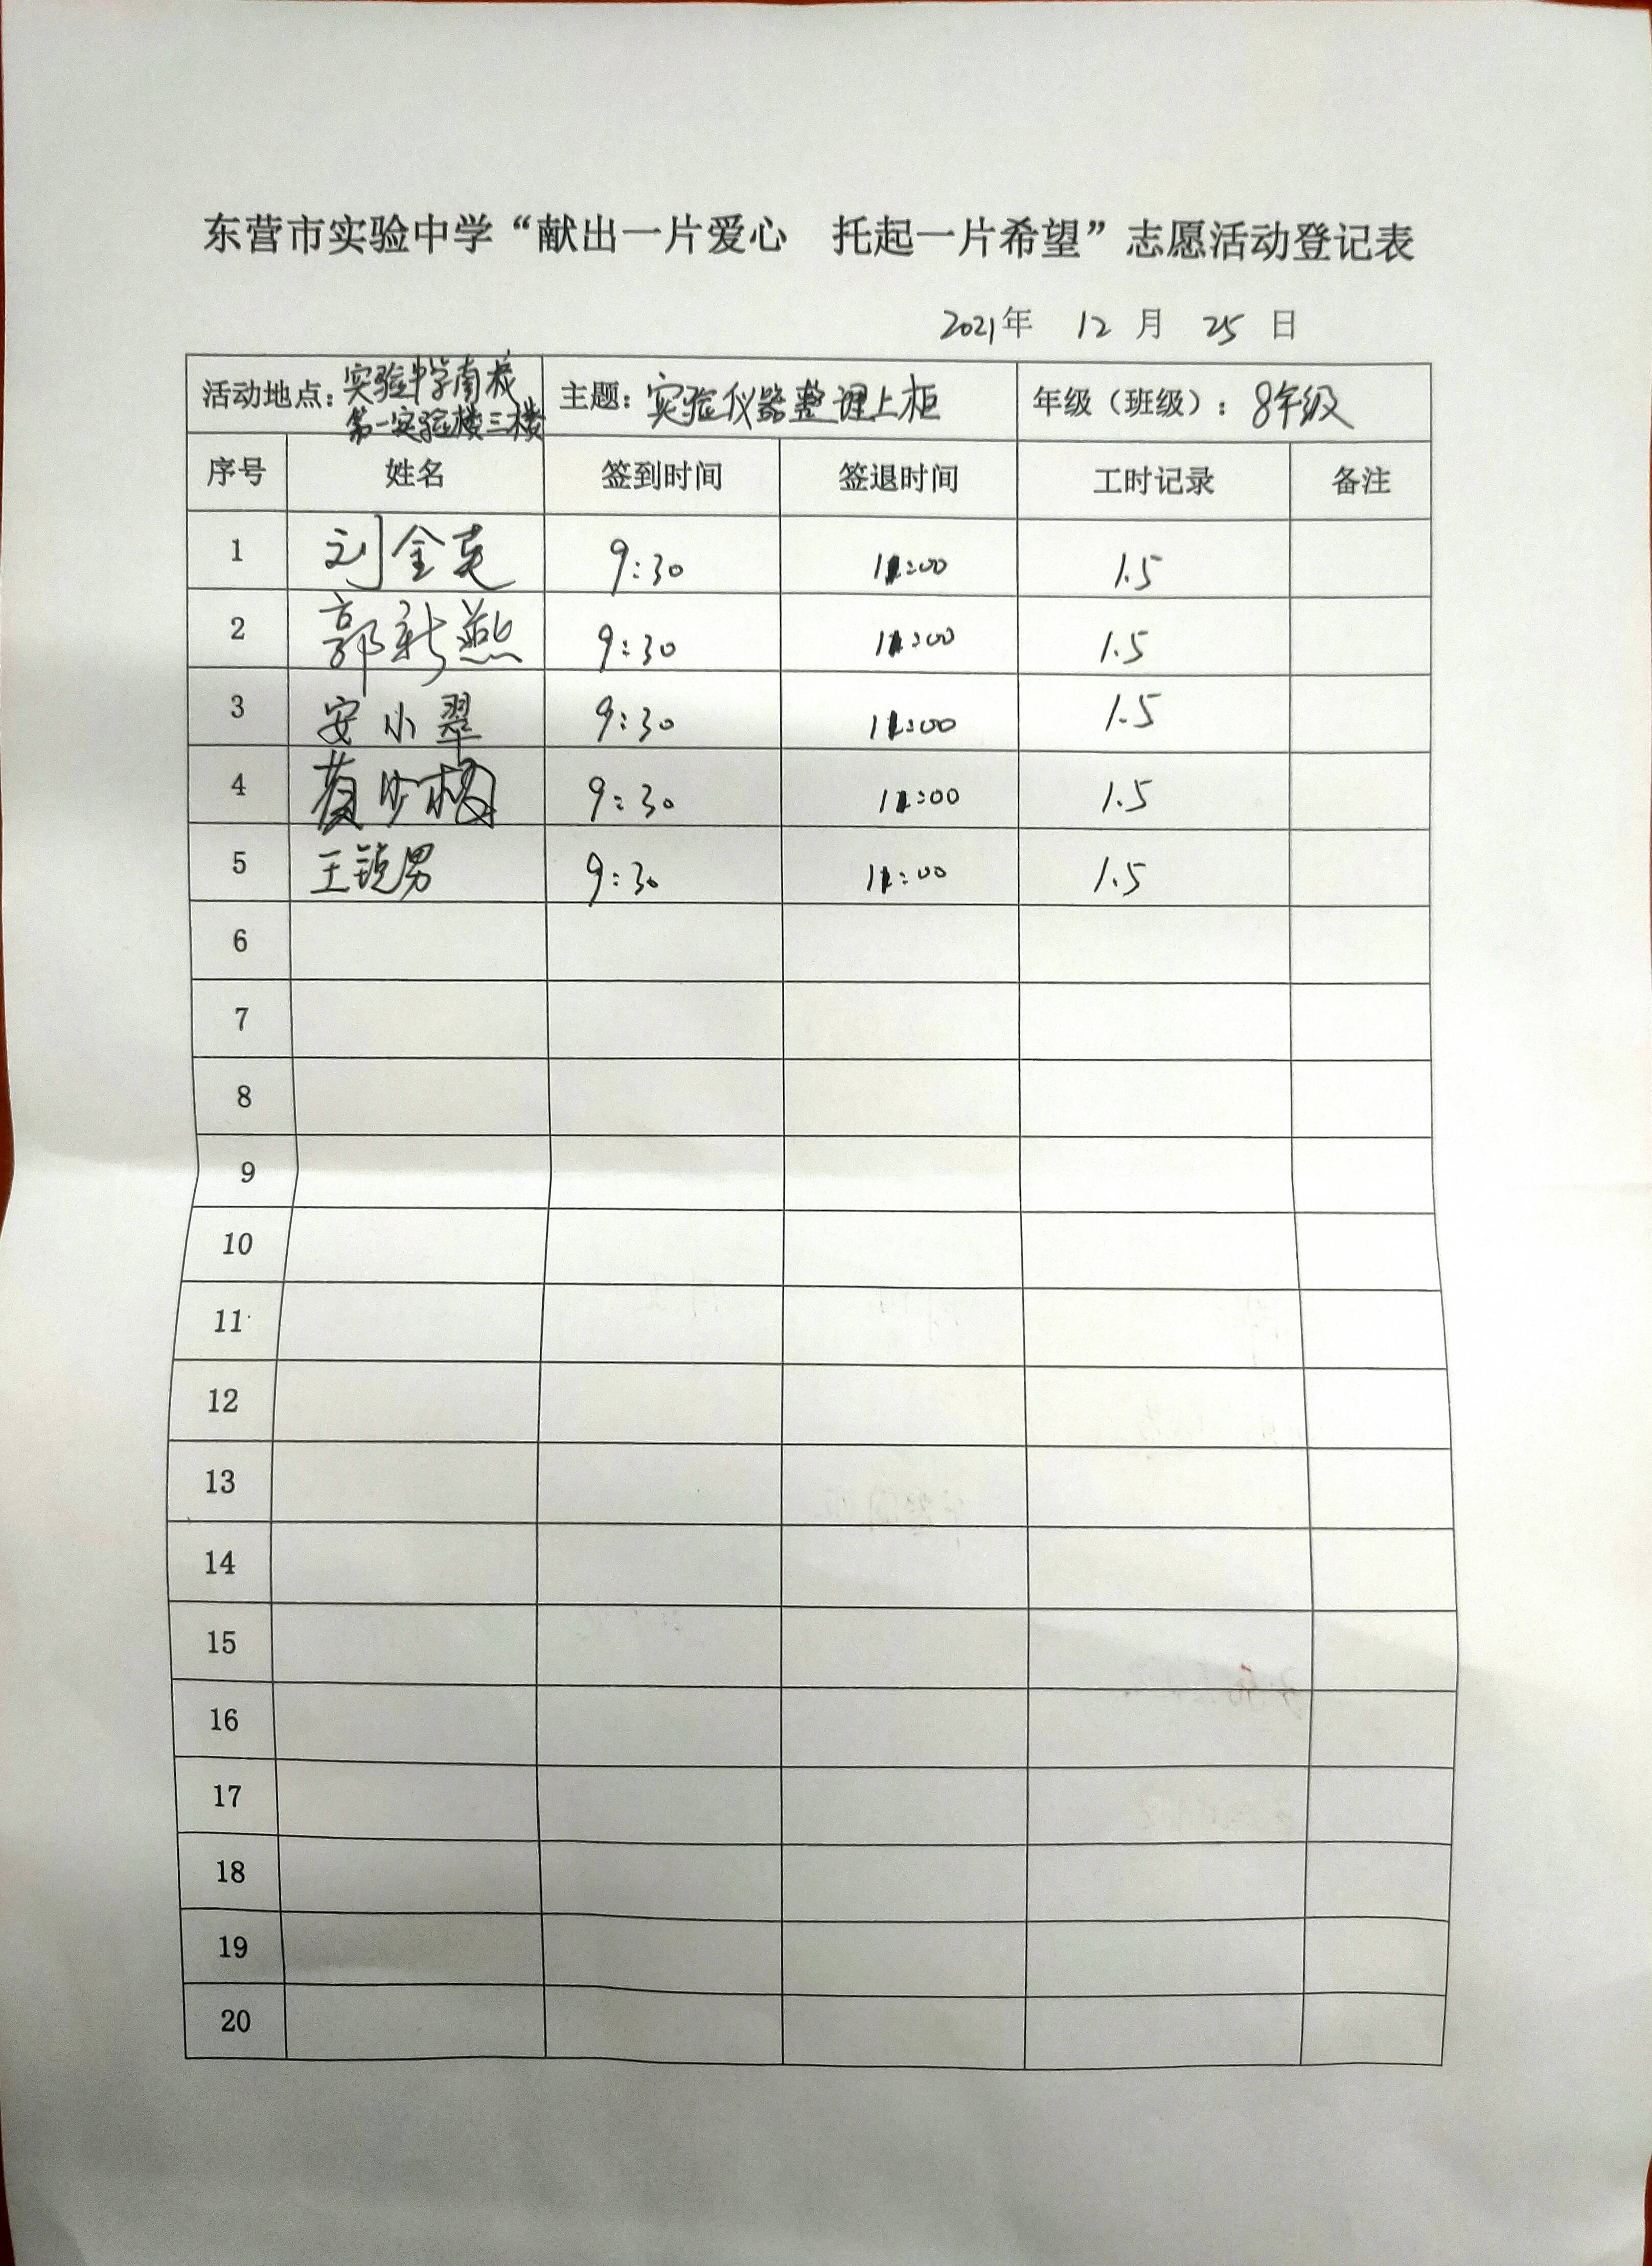 东营市实验中学“献出一片爱心 托起一片希望”志愿活动登记表
2021年 12 月 25 日
活动地点：实验中学南校 第一实验楼三楼 主题：实验仪器整理上柜 年级（班级）：8年级
序号 姓名 签到时间 签退时间 工时记录 备注
1 刘金英 9:30 11:00 1.5
2 郭新燕 9:30 11:00 1.5
3 安小翠 9:30 11:00 1.5
4 9:30 11:00 1.5
5 王锐男 9:30 11:00 1.5
6
7
8
9
10
11
12
13
14
15
16
17
18
19
20